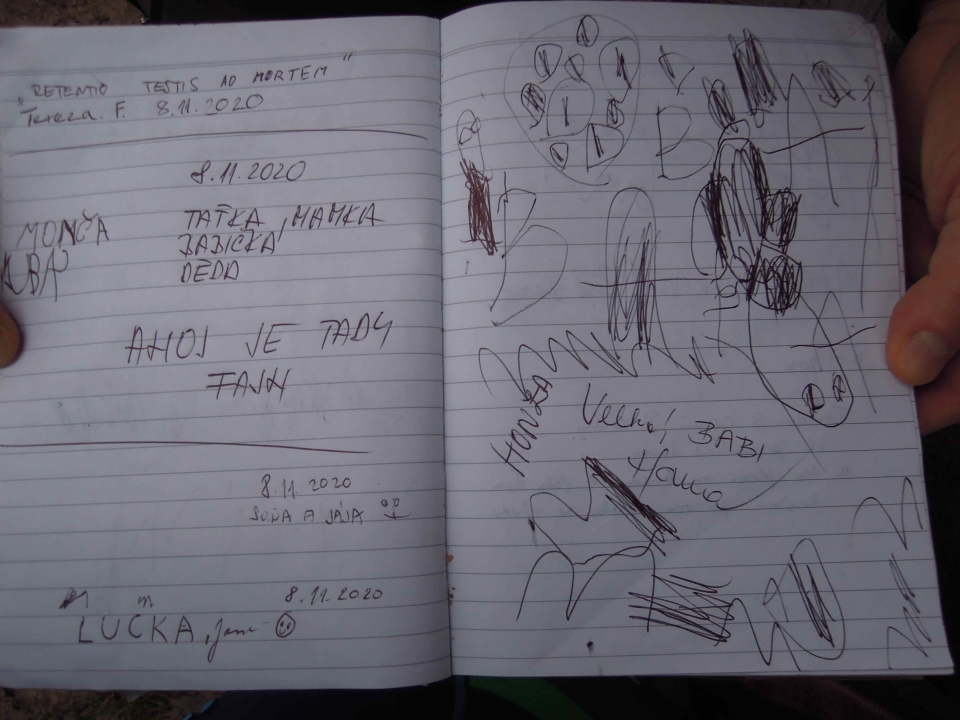 "RETENTIO TESTIS AD MORTEM"
Tereza. F. 8.11.2020
8.11.2020
MONČA TAŤKA, MAMKA
KUBA BABIČKA,
DĚDA
AHOJ JE TADY
FAJN
8.11.2020
SOŇA A JÁJA
8.11.2020
LUCKA, Jana
B
B
HONZA
BABI
Hanka